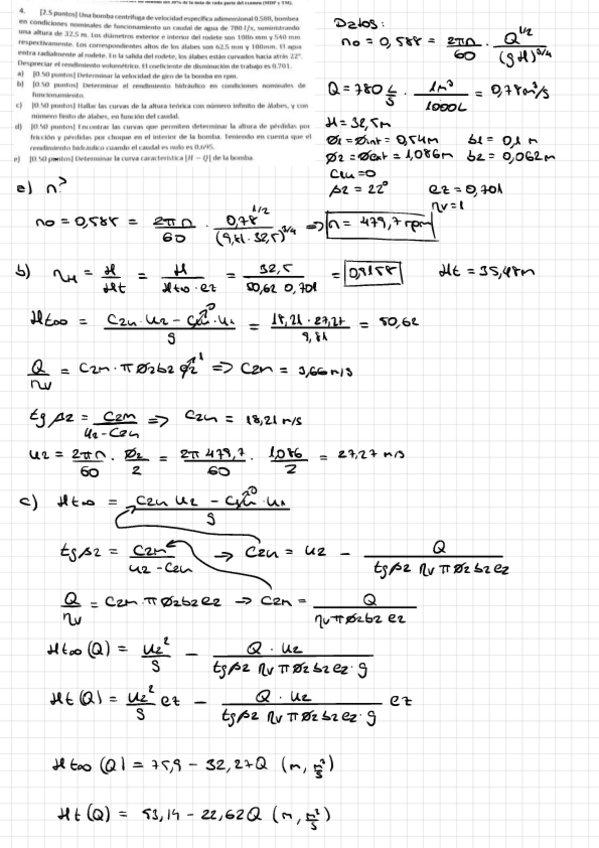 4. [2.5 puntos] Una bomba centrífuga de velocidad específica adimensional 0.588, bombea
en condiciones nominales de funcionamiento un caudal de agua de 780 l/s, suministrando
una altura de 32.5 m. Los diámetros exterior e interior del rodete son 1086 mm y 540 mm
respectivamente. Los correspondientes altos de los álabes son 62.5 mm y 100mm. El agua
entra radialmente al rodete. En la salida del rodete, los álabes están curvados hacia atrás 22°.
Despreciar el rendimiento volumétrico. El coeficiente de disminución de trabajo es 0.701.
a) [0.50 puntos] Determinar la velocidad de giro de la bomba en rpm.
b) [0.50 puntos] Determinar el rendimiento hidráulico en condiciones nominales de
funcionamiento.
c) [0.50 puntos] Hallar las curvas de la altura teórica con número infinito de álabes, y con
número finito de álabes, en función del caudal.
d) [0.50 puntos] Encontrar las curvas que permiten determinar la altura de pérdidas por
fricción y pérdidas por choque en el interior de la bomba. Teniendo en cuenta que el
rendimiento hidráulico cuando el caudal es nulo es 0.695.
e) [0.50 puntos] Determinar la curva característica [H − Q] de la bomba.
Datos:
no = 0,588 = 2πn/60 · Q^1/2/(gH)^3/4
Q = 780 L/s · 1m³/1000L = 0,78m³/s
H = 32,5m
Ø1 = Øint = 0,54m b1 = 0,1 m
Ø2 = Øext = 1,086m b2 = 0,062m
C1u = 0
β2 = 22° e2 = 0,701
ηv = 1
a) n?
no = 0,588 = 2πn/60 · 0,78^1/2/(9,81·32,5)^3/4 ⇒ n = 479,7 rpm
b) ηH = H/Ht = H/(Ht∞·e2) = 32,5/(50,62·0,701) = 0,9158 Ht = 35,48m
Ht∞ = (C2u·u2 − C1u·u1)/g = 18,21·27,27/9,81 = 50,62
Q/ηv = C2m·πØ2b2 φ2 ⇒ C2m = 3,66 m/s
tgβ2 = C2m/(u2−C2u) ⇒ C2u = 18,21 m/s
u2 = 2πn/60 · Ø2/2 = 2π479,7/60 · 1,086/2 = 27,27 m/s
c) Ht∞ = (C2u u2 − C1u·u1)/g
tgβ2 = C2m/(u2−C2u) → C2u = u2 − Q/(tgβ2 ηv π Ø2b2e2)
Q/ηv = C2m·πØ2b2e2 → C2m = Q/(ηvπØ2b2e2)
Ht∞(Q) = u2²/g − Q·u2/(tgβ2 ηv π Ø2b2e2·g)
Ht(Q) = u2²/g e2 − Q·u2/(tgβ2 ηv π Ø2b2e2·g) e2
Ht∞(Q) = 75,9 − 32,27Q (m, m³/s)
Ht(Q) = 53,14 − 22,62Q (m, m³/s)